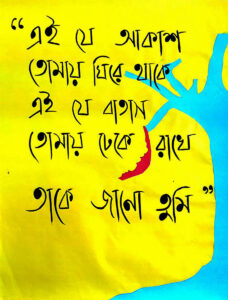 “এই যে আকাশ
তোমায় ঘিরে থাকে
এই যে বাতাস
তোমায় ঢেকে রাখে
তাকে জানো তুমি”